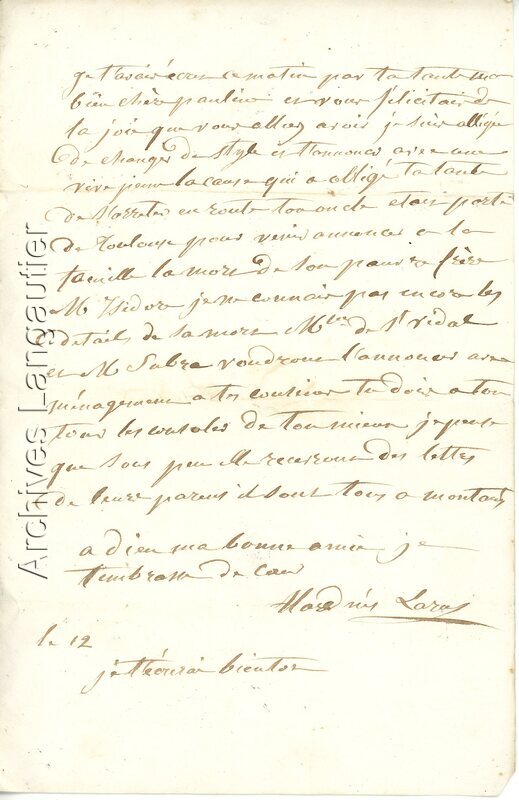 je t'avais écris ce matin par ta tante ma
bien chère pauline et vous félicitais de
la joie que vous alliez avoir je suis obligée
de changer de style et t'annoncer avec une
vive peine la cause qui a obligé ta tante
de s'arreter en route ton oncle etais parti
de toulouse pour venir annoncer a la
famille la mort de son pauvre frère
M Isidore je ne connais pas encore les
details de sa mort Mme de St vidal
et M Sabre voudront l'annoncer avec
ménagement a tes cousines tu dois a ton
tour les consoler de ton mieux je pense
que sous peu elle recevront des lettes
de leurs parens il sont tous a montaut
a dieu ma bonne amie je
t'embrasse de cœur
Laras
le 12
je t'écrirai bientot
Archives Langautier